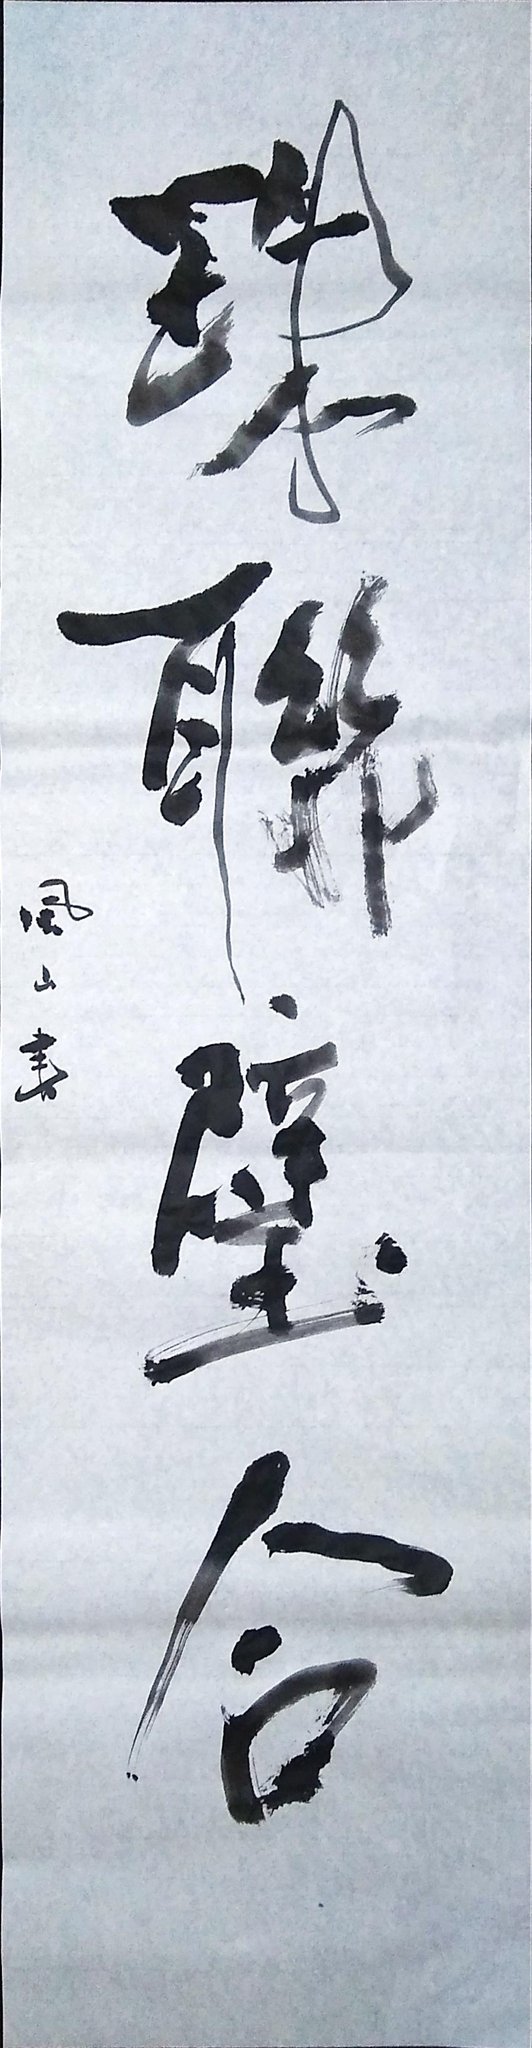 珠聯璧合
風山書